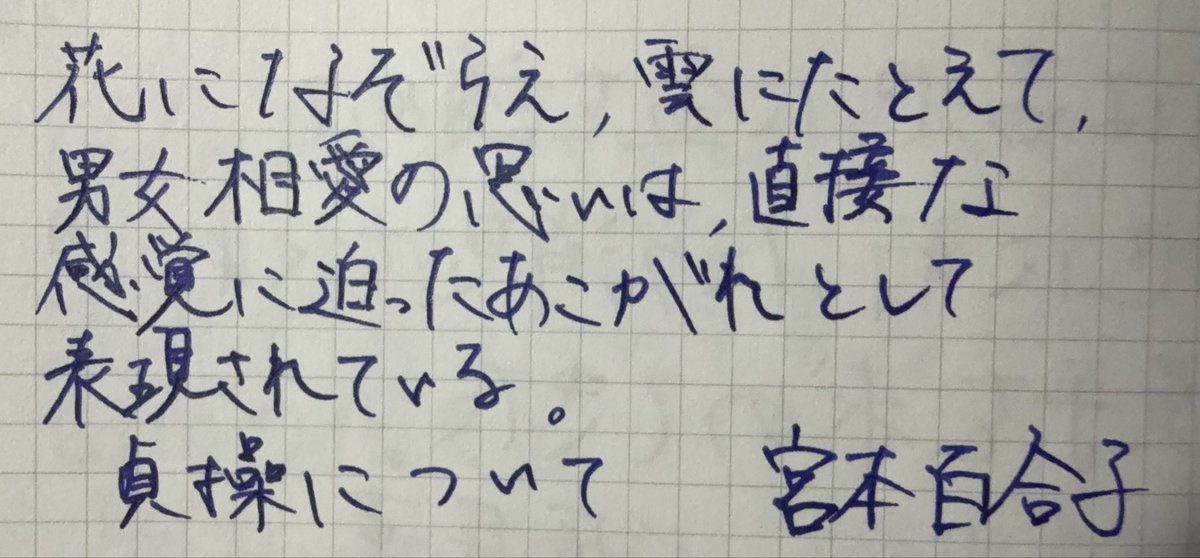 花になぞらえ,雲にたとえて,
男女相愛の思いは,直接な
感覚に迫ったあこがれとして
表現されている。
貞操について 宮本百合子